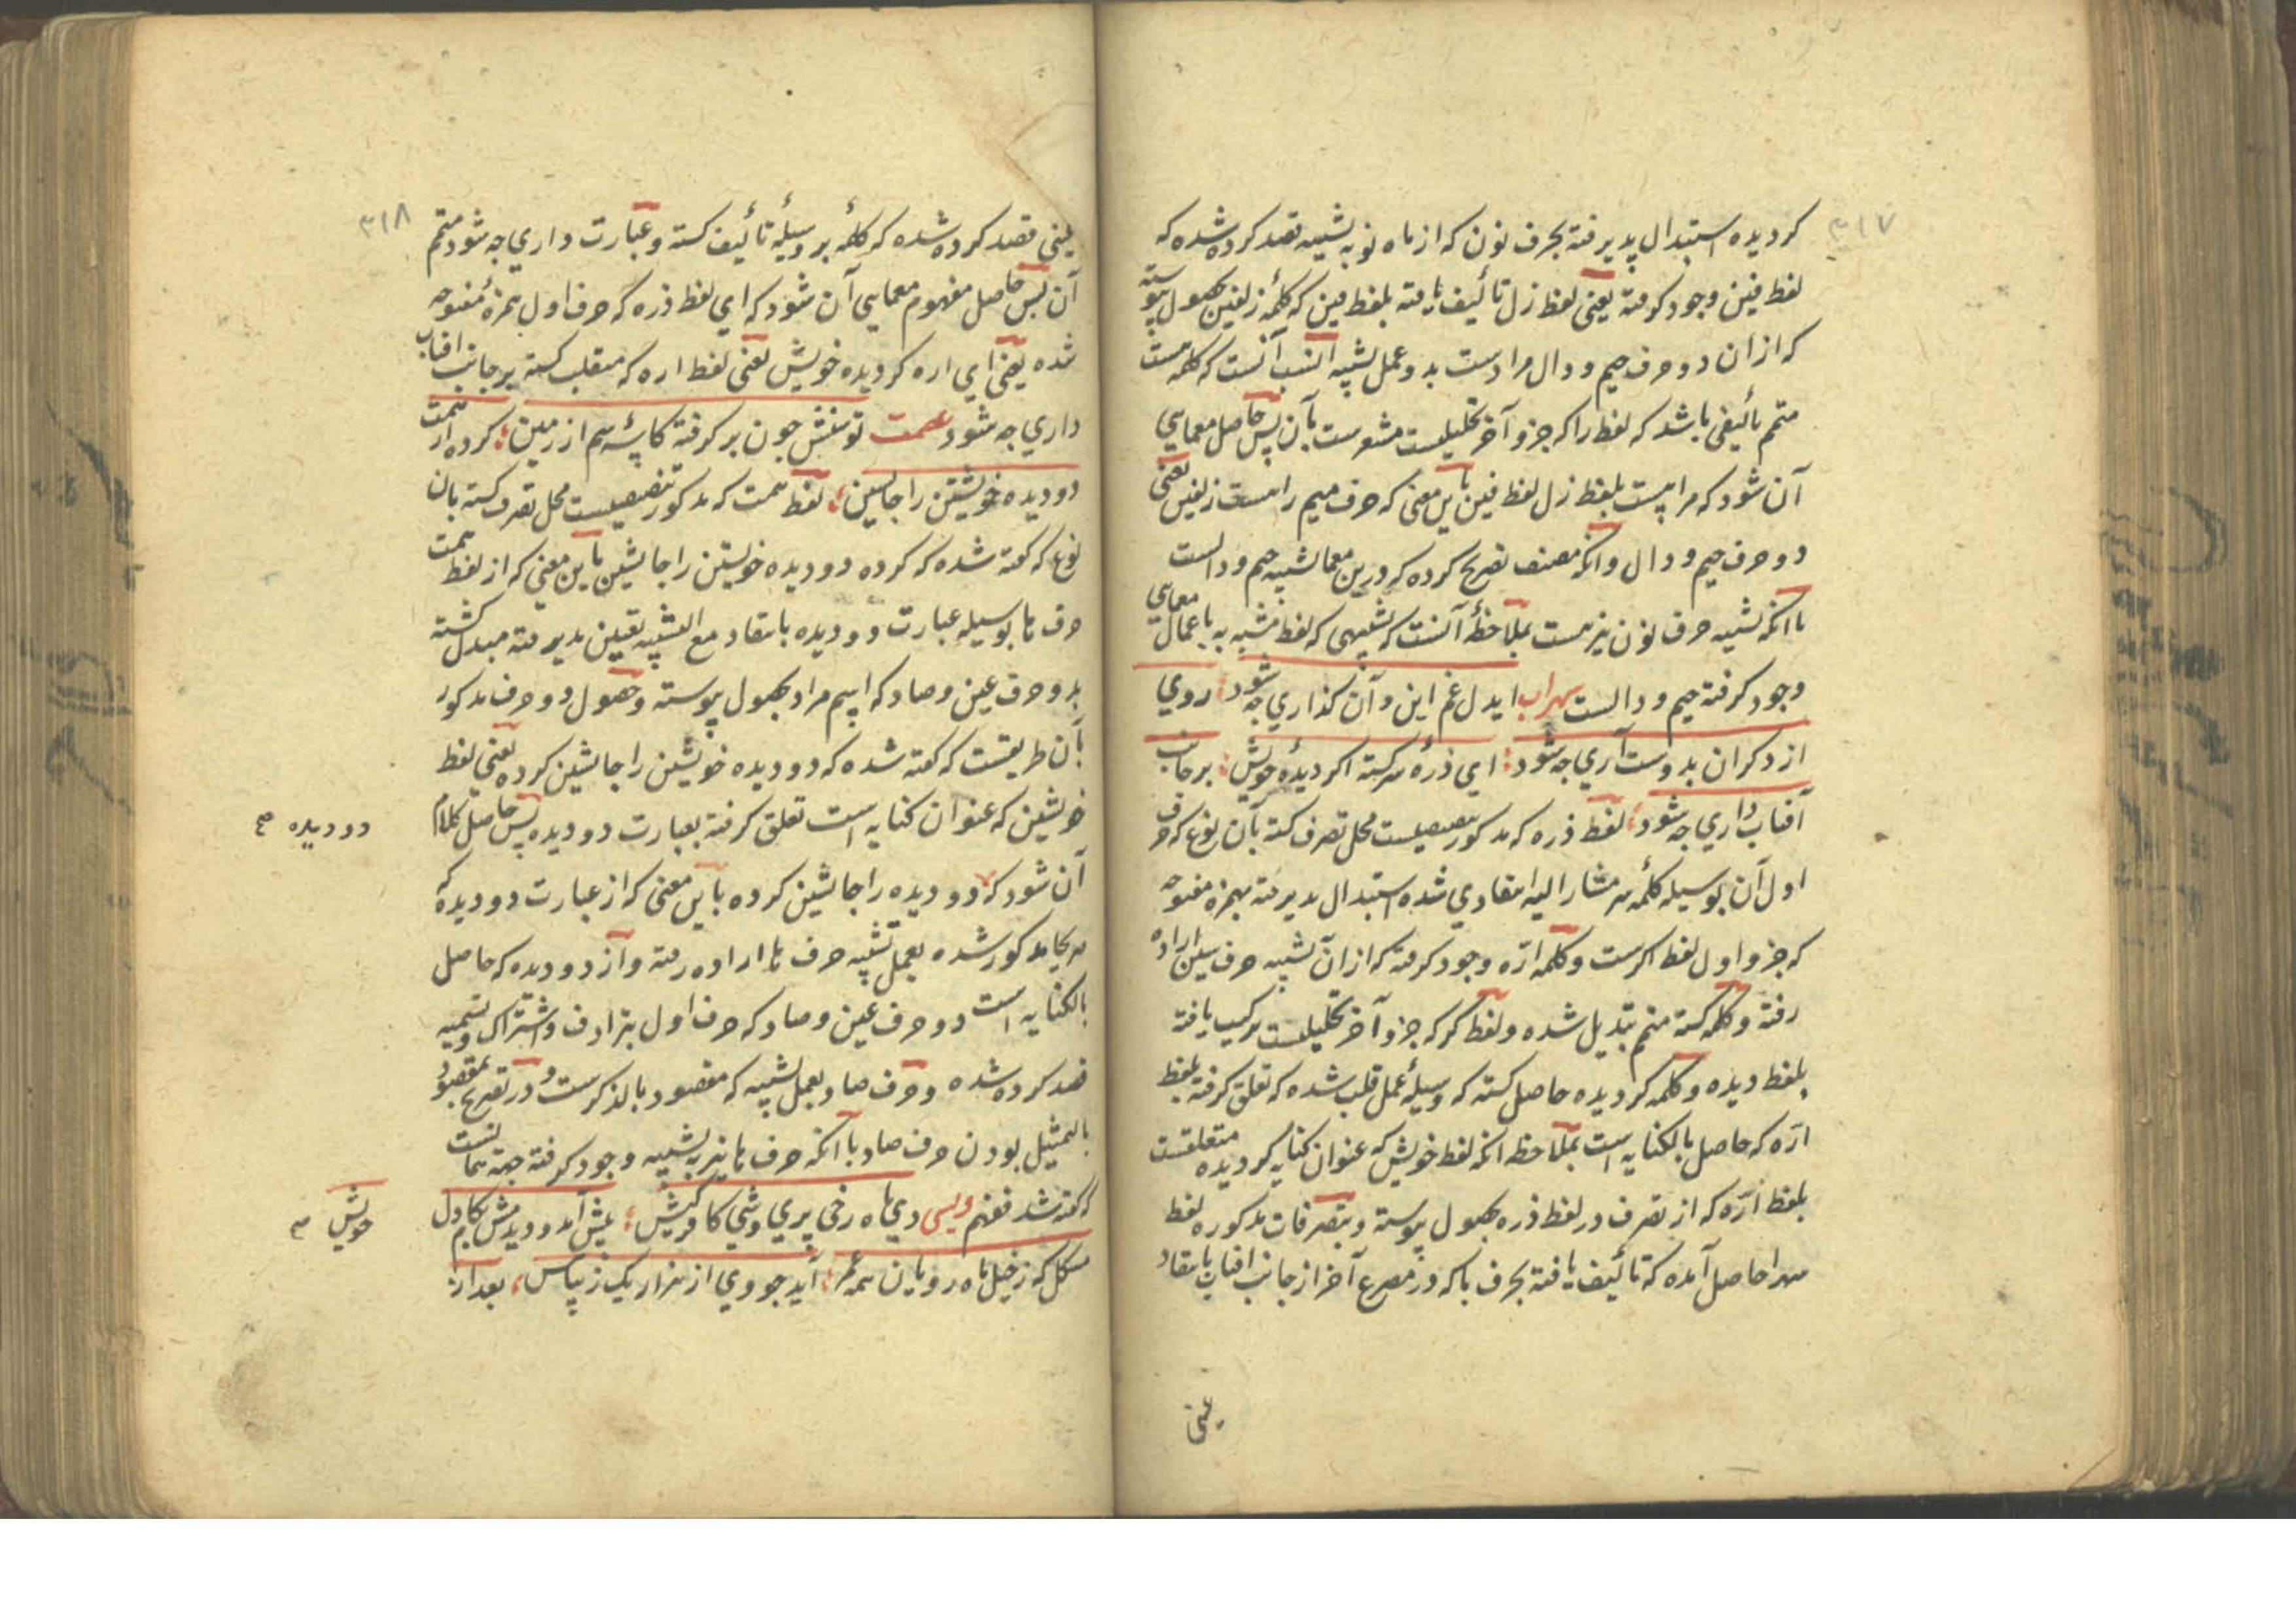 ۳۱۷
کردیده استبدال پدیرفته بحرف نون که از ماه نو به تشبیه قصد کرده شده که
لفظ فین وجود کرفته یعنی لفظ زل تألیف یافته بلفظ فین که کلمه زلفین بحصول پیوسته
که از ان دو حرف جیم و دال مرادست بدو عمل تشبیه انسب آنست که کلمه هست
متمم تألیفی باشد که لفظ را که جزو آخر تحلیلیست مشعرست بآن پس حاصل معمایی
آن شود که مراهست بلفظ زل لفظ فین باین معنی که حرف میم راهست زلفین یعنی
دو حرف جیم و دال وانکه مصنف تصریح کرده که درین معما تشبیه جیم و دالست
باانکه تشبیه حرف نون نیز هست بملاحظهٔ آنست که تشبیهی که لفظ مشبه به باعمال معمایی
وجود کرفته جیم و دالست سهراب ایدل غم این و آن کذاری چه شود روی
از دکران بدوست آری چه شود ای ذرهٔ سرکشته اکر دیدهٔ خویش بر جانب
آفتاب داری چه شود لفظ ذره که مدکور تنصیصیست محل تصرف کشته بآن نوع که حرف
اول آن بوسیله کلمه سر مشار الیه انتقادی شده استبدال پدیرفته بهمزه مفتوحه
که جزو اول لفظ اکرست و کلمه ارّه وجود کرفته که از ان تشبیه حرف سین اراده
رفته و کلمه کشته متمم تبدیل شده و لفظ کر که جزو آخر تحلیلیست ترکیب یافته
بلفظ دیده و کلمه کردیده حاصل کشته که وسیلهٔ عمل قلب شده که تعلق کرفته بلفظ
ارّه که حاصل بالکنایه است بملاحظه انکه لفظ خویش که عنوان کنایه کردیده متعلقست
بلفظ ارّه که از تصرف در لفظ ذره بحصول پیوسته و بتصرفات مدکوره لفظ
سهرا حاصل آمده که تألیف یافته بحرف با که در مصرع آخر از جانب افتاب بانتقاد
یعنی
۳۱۸
یعنی قصد کرده شده که کلمهٔ بر وسیلهٔ تألیف کشته و عبارت داری چه شود متمم
آن پس حاصل مفهوم معمایی آن شود که ای لفظ ذره که حرف اول همزهٔ مفتوحه
شده یعنی ای اره کردیده خویش یعنی لفظ اره که منقلب کشته بر جانب افتاب
داری چه شود عصمت توسنش چون بر کرفته کاسهٔ سم از زمین کرده از همت
دو دیده خویشتن را جانشین لفظ همت که مدکور تنصیصیست محل تصرف کشته بان
نوع که کفته شده که کرده دو دیده خویشتن را جانشین باین معنی که از لفظ همت
حرف ها بوسیله عبارت دو دیده بانتقاد مع التشبیه تعیین پدیرفته مبدل کشته
بدو حرف عین و صاد که اسم مراد بحصول پیوسته و حصول دو حرف مدکور
بآن طریقست که کفته شده که دو دیده خویشتن را جانشین کرده یعنی لفظ
خویشتن که عنوان کنایه است تعلق کرفته بعبارت دو دیده پس حاصل کلام
دو دیده صح
آن شود که دو دیده را جانشین کرده باین معنی که از عبارت دو دیده که
صریحا مدکور شده بعمل تشبیه حرف ها اراده رفته و از دو دیده که حاصل
بالکنایه است دو حرف عین و صاد که حرف اول بترادف و اشتراک و تسمیه
قصد کرده شده و حرف صاد بعمل تشبیه که مقصود بالذکرست و در تصریح بمقصود
بالتمثیل بودن حرف صاد باآنکه حرف ها نیز به تشبیه وجود کرفته جهة همانست
که کفته شد فافهم ویسی دی ماه رخی پری وشی کافر کیش پیش آمد و دیدمش بکام دل
خویش م
مشکل که ز خیل ماه رویان همه عمر آید چو وی از هزار یک ز پیش بعد از